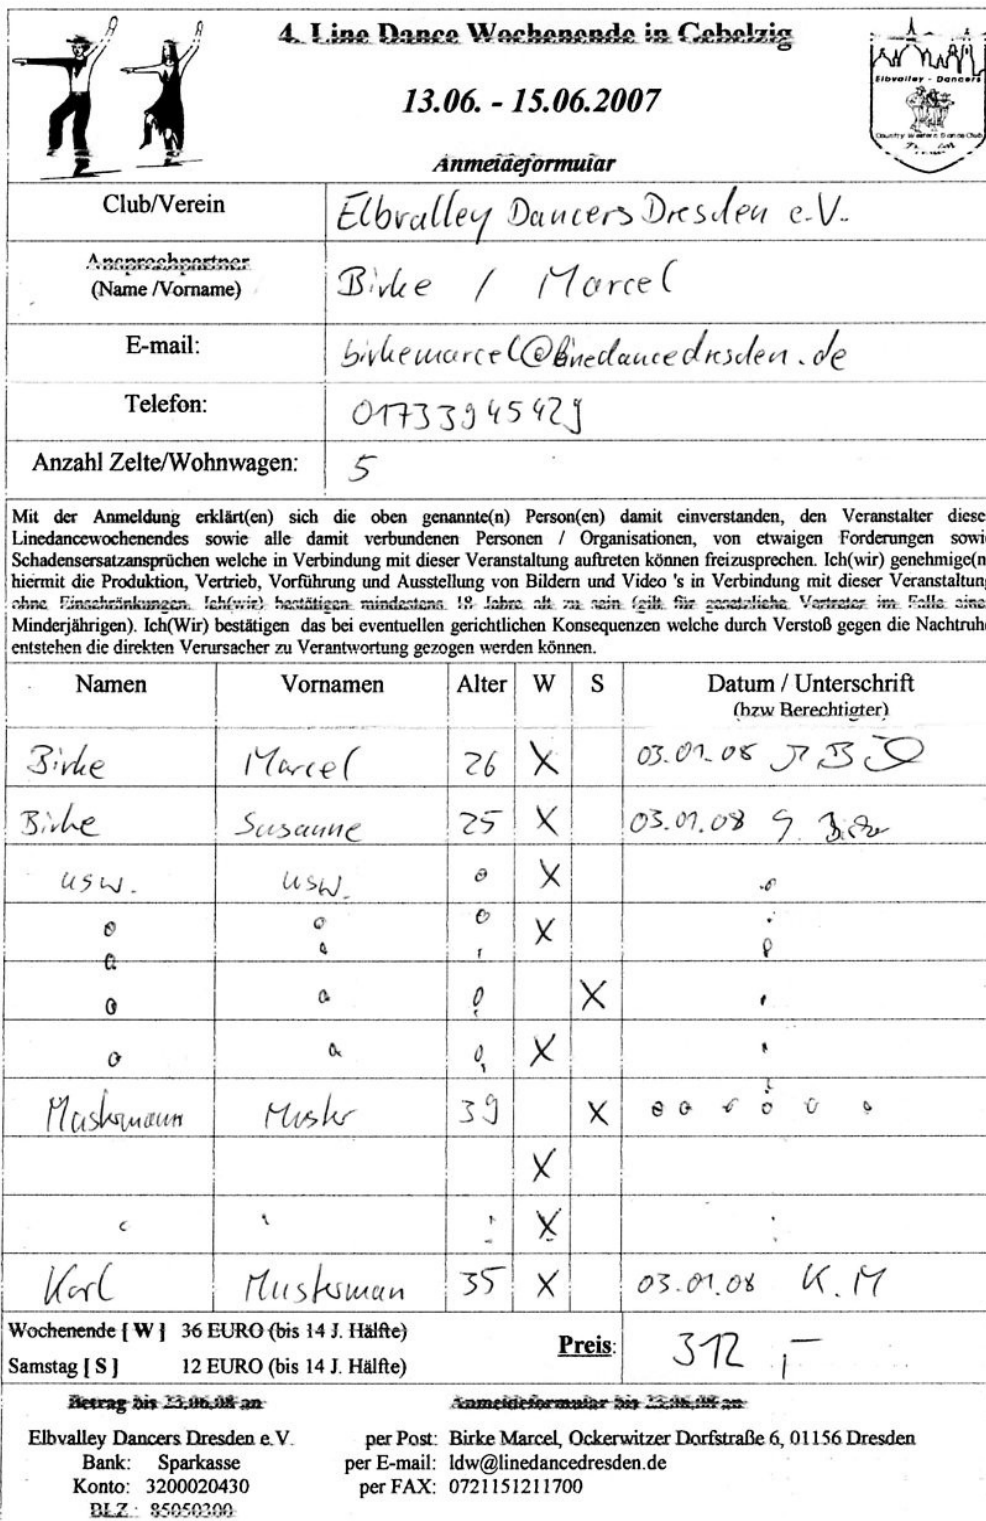 4. Line Dance Wochenende in Gebelzig
13.06. - 15.06.2007
Anmeldeformular
Elbvalley - Dancers
Country Western Dance Club
Club/Verein Elbvalley Dancers Dresden e.V.
Ansprechpartner
(Name /Vorname) Birke / Marcel
E-mail: birkemarcel@linedancedresden.de
Telefon: 01733945429
Anzahl Zelte/Wohnwagen: 5
Mit der Anmeldung erklärt(en) sich die oben genannte(n) Person(en) damit einverstanden, den Veranstalter diese
Linedancewochenendes sowie alle damit verbundenen Personen / Organisationen, von etwaigen Forderungen sowi
Schadensersatzansprüchen welche in Verbindung mit dieser Veranstaltung auftreten können freizusprechen. Ich(wir) genehmige(n
hiermit die Produktion, Vertrieb, Vorführung und Ausstellung von Bildern und Video 's in Verbindung mit dieser Veranstaltung
ohne Einschränkungen. Ich(wir) bestätigen mindestens 18 Jahre alt zu sein (gilt für gesetzliche Vertreter im Falle eines
Minderjährigen). Ich(Wir) bestätigen das bei eventuellen gerichtlichen Konsequenzen welche durch Verstoß gegen die Nachtruhe
entstehen die direkten Verursacher zu Verantwortung gezogen werden können.
Namen Vornamen Alter W S Datum / Unterschrift
(bzw Berechtigter)
Birke Marcel 26 X 03.01.08
Birke Susanne 25 X 03.01.08 S. Birke
usw. usw. X
X
X
X
Mustermann Muster 39 X
X
X
Karl Musterman 35 X 03.01.08 K.M
Wochenende [ W ] 36 EURO (bis 14 J. Hälfte)
Samstag [ S ] 12 EURO (bis 14 J. Hälfte)
Preis: 312,-
Betrag bis 23.06.08 an Anmeldeformular bis 23.06.08 an
Elbvalley Dancers Dresden e.V. per Post: Birke Marcel, Ockerwitzer Dorfstraße 6, 01156 Dresden
Bank: Sparkasse per E-mail: ldw@linedancedresden.de
Konto: 3200020430 per FAX: 0721151211700
BLZ : 85050300